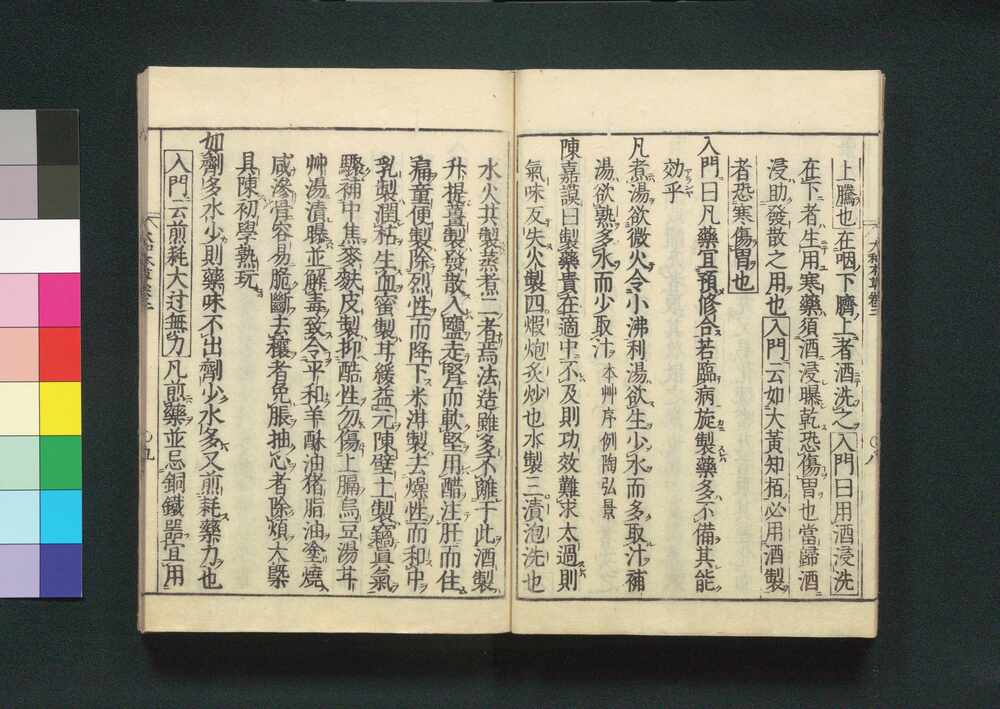 上騰也在咽下臍上者酒洗之入門曰用酒浸洗
在下者生用寒藥須酒浸曝乾恐傷胃也當歸酒
浸助發散之用也入門云如大黃知栢必用酒製
者恐寒傷胃也
入門曰凡藥宜預修合若臨病旋製藥多不備其能
効乎
凡煮湯欲微火令小沸利湯欲生少水而多取汁補
湯欲熟多水而少取汁本艸序例陶弘景
陳嘉謨曰製藥貴在適中不及則功效難求太過則
氣味反失火製四煆炮炙炒也水製三漬泡洗也
水火共製蒸煮二者焉法造雖多不離于此酒製
升提薑製發散入鹽走腎而軟堅用醋注肝而住
痛童便製除烈性而降下米泔製去燥性而和中
乳製潤枯生血蜜製甘緩益元陳壁土製竊眞氣
驟補中焦麥麩皮製抑酷性勿傷上膈烏豆湯甘
艸湯漬曝並解毒致令平和羊酥油猪脂油塗燒
咸滲骨容易脆斷去穰者免脹抽心者除煩大槩
具陳初學熟玩
如劑多水少則藥味不出劑少水多又煎耗藥力也
入門云煎耗大过無力凡煎藥並忌銅鐵器宜用